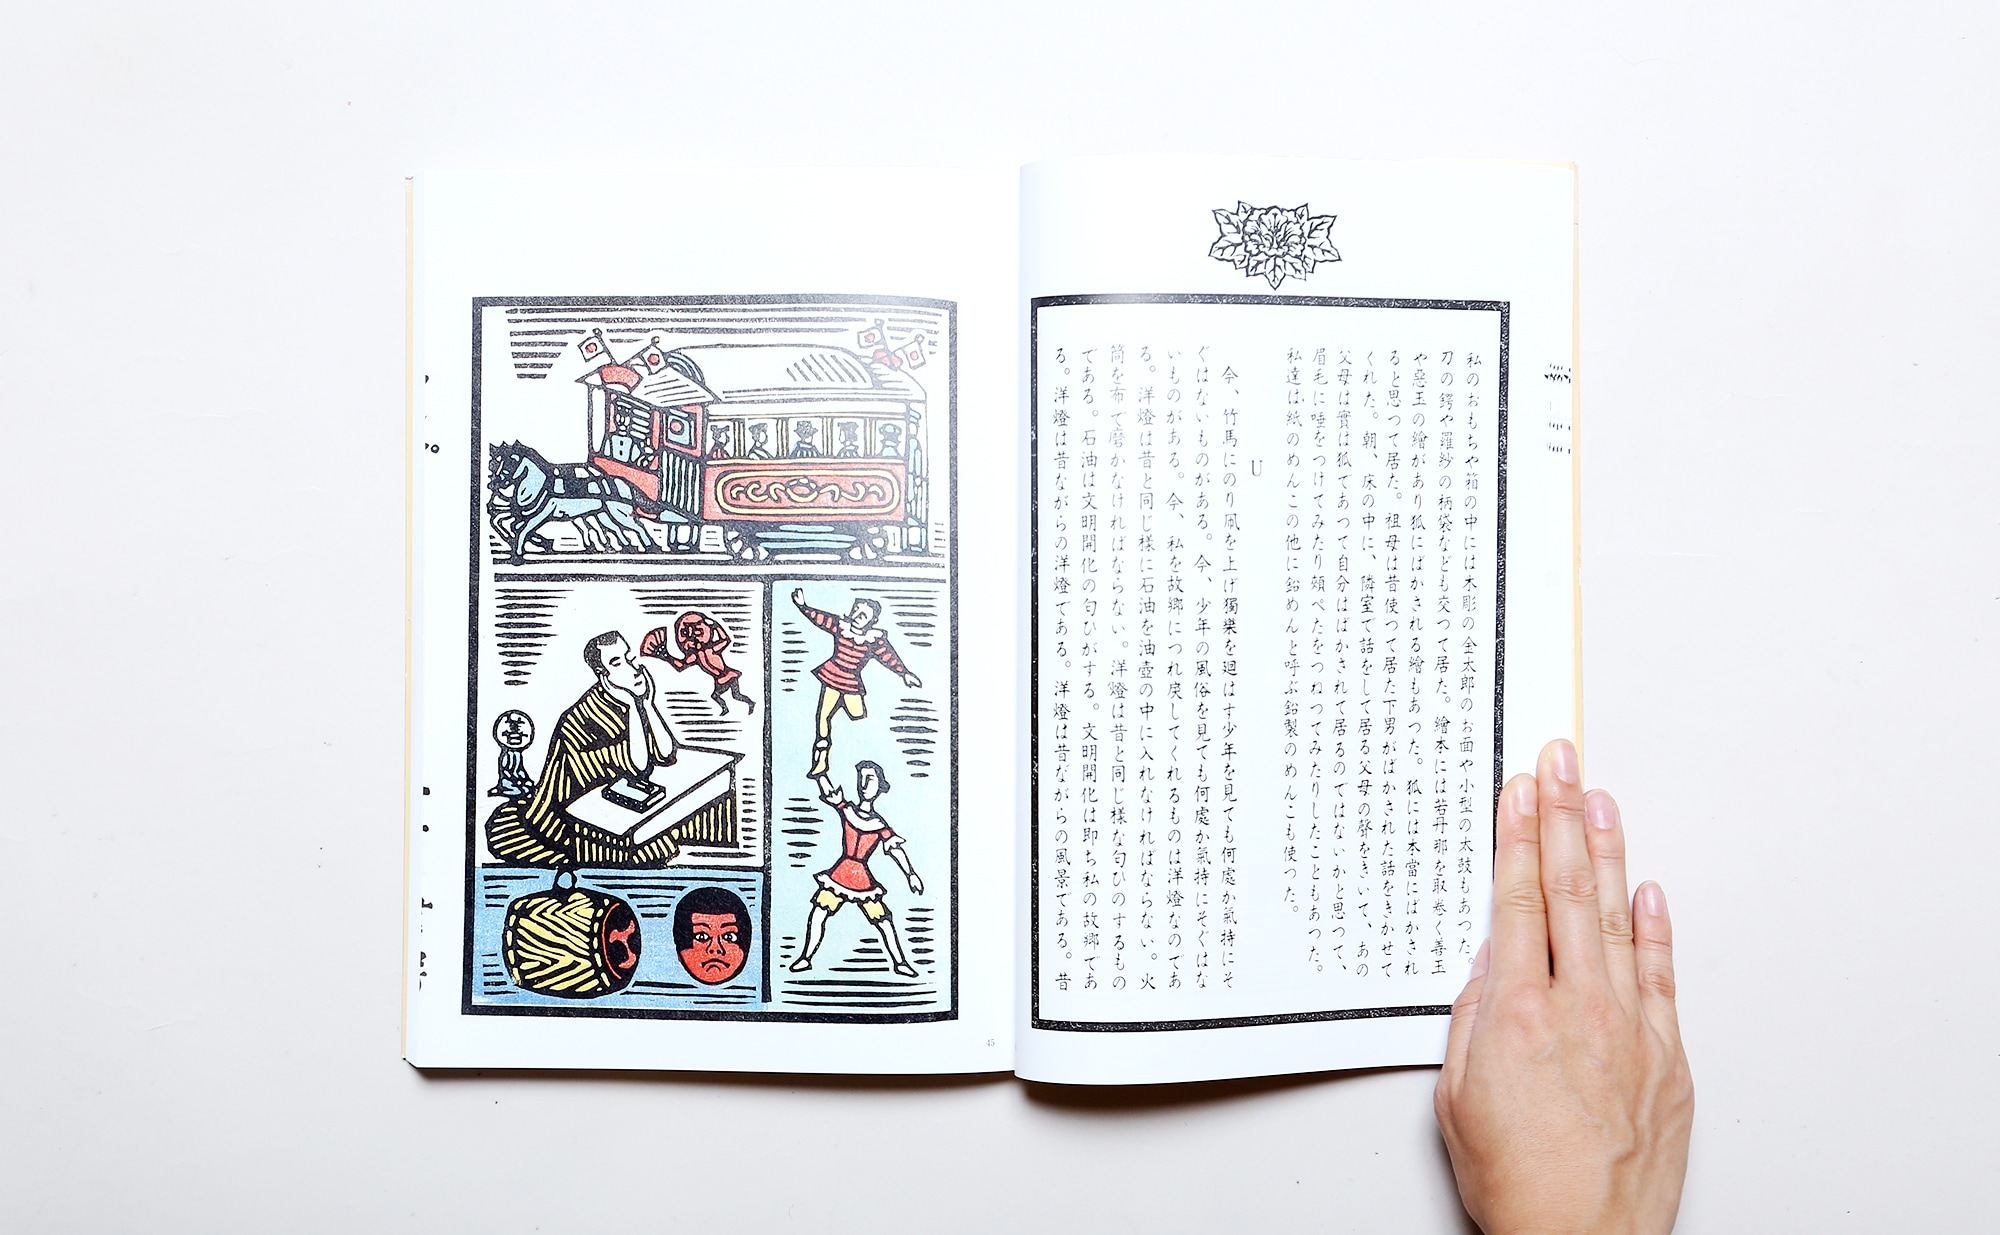 私のおもちや箱の中には木彫の金太郎のお面や小型の太鼓もあつた。
刀の鍔や羅紗の柄袋なども交つて居た。繪本には若丹那を取巻く善玉
や惡玉の繪があり狐にばかされる繪もあつた。狐には本當にばかされ
ると思つて居た。祖母は昔使つて居た下男がばかされた話をきかせて
くれた。朝、床の中に、隣室で話をして居る父母の聲をきいて、あの
父母は實は狐であつて自分はばかされて居るのではないかと思つて、
眉毛に唾をつけてみたり頬ぺたをつねつてみたりしたこともあつた。
私達は紙のめんこの他に鉛めんと呼ぶ鉛製のめんこも使つた。
U
今、竹馬にのり凧を上げ獨樂を廻はす少年を見ても何處か氣持にそ
ぐはないものがある。今、少年の風俗を見ても何處か氣持にそぐはな
いものがある。今、私を故郷につれ戻してくれるものは洋燈なのであ
る。洋燈は昔と同じ様に石油を油壺の中に入れなければならない。火
筒を布で磨かなければならない。洋燈は昔と同じ様な匂ひのするもの
である。石油は文明開化の匂ひがする。文明開化は即ち私の故郷であ
る。洋燈は昔ながらの洋燈である。洋燈は昔ながらの風景である。昔
善
45